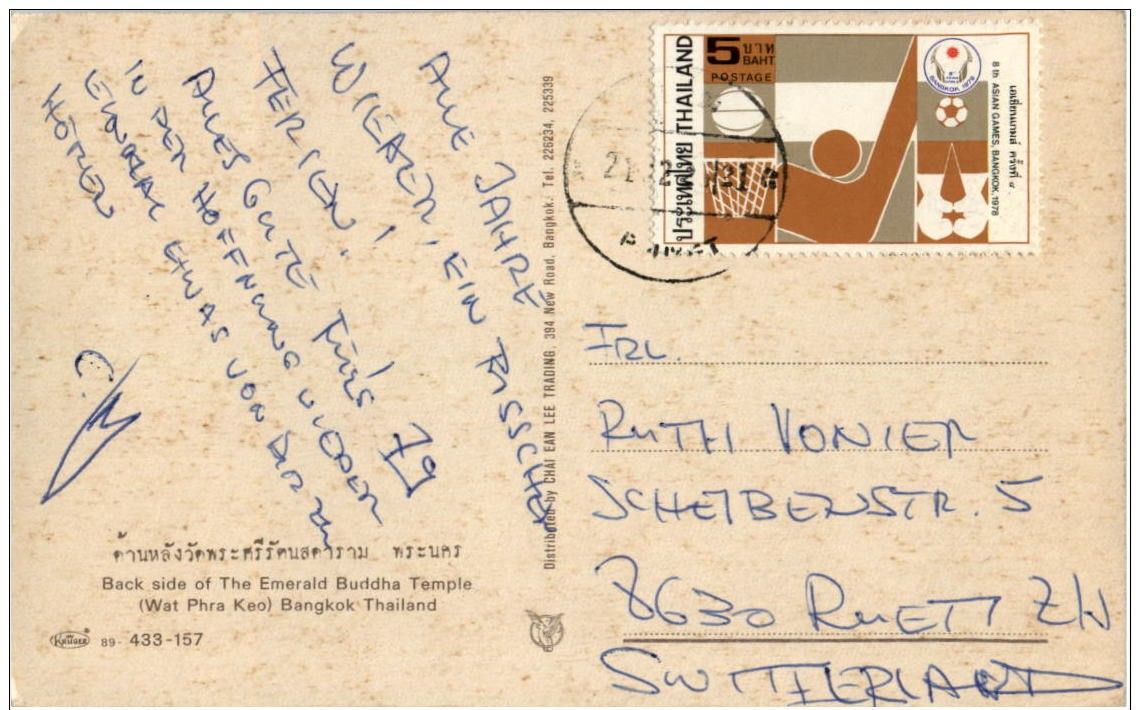 ALLE JAHRE
WIEDER! EIN BISSCHEN
FERIEN!
ALLES GUTE FÜRS 79
IN DER HOFFNUNG WIEDER
EINMAL ETWAS VON DIR ZU
HÖREN
ด้านหลังวัดพระศรีรัตนสดาราม พระนคร
Back side of The Emerald Buddha Temple
(Wat Phra Keo) Bangkok Thailand
KRÜGER 89- 433-157
Distributed by CHAI EAN LEE TRADING, 394 New Road, Bangkok. Tel. 226234, 225339
5 บาท
BAHT
POSTAGE
ประเทศไทย THAILAND
BANGKOK 1978
เอเชี่ยนเกมส์ ครั้งที่ ๘
8th ASIAN GAMES, BANGKOK, 1978
FRL.
RUTH VONIER
SCHEIBENSTR. 5
8630 RUETI ZH
SWITTERLAND